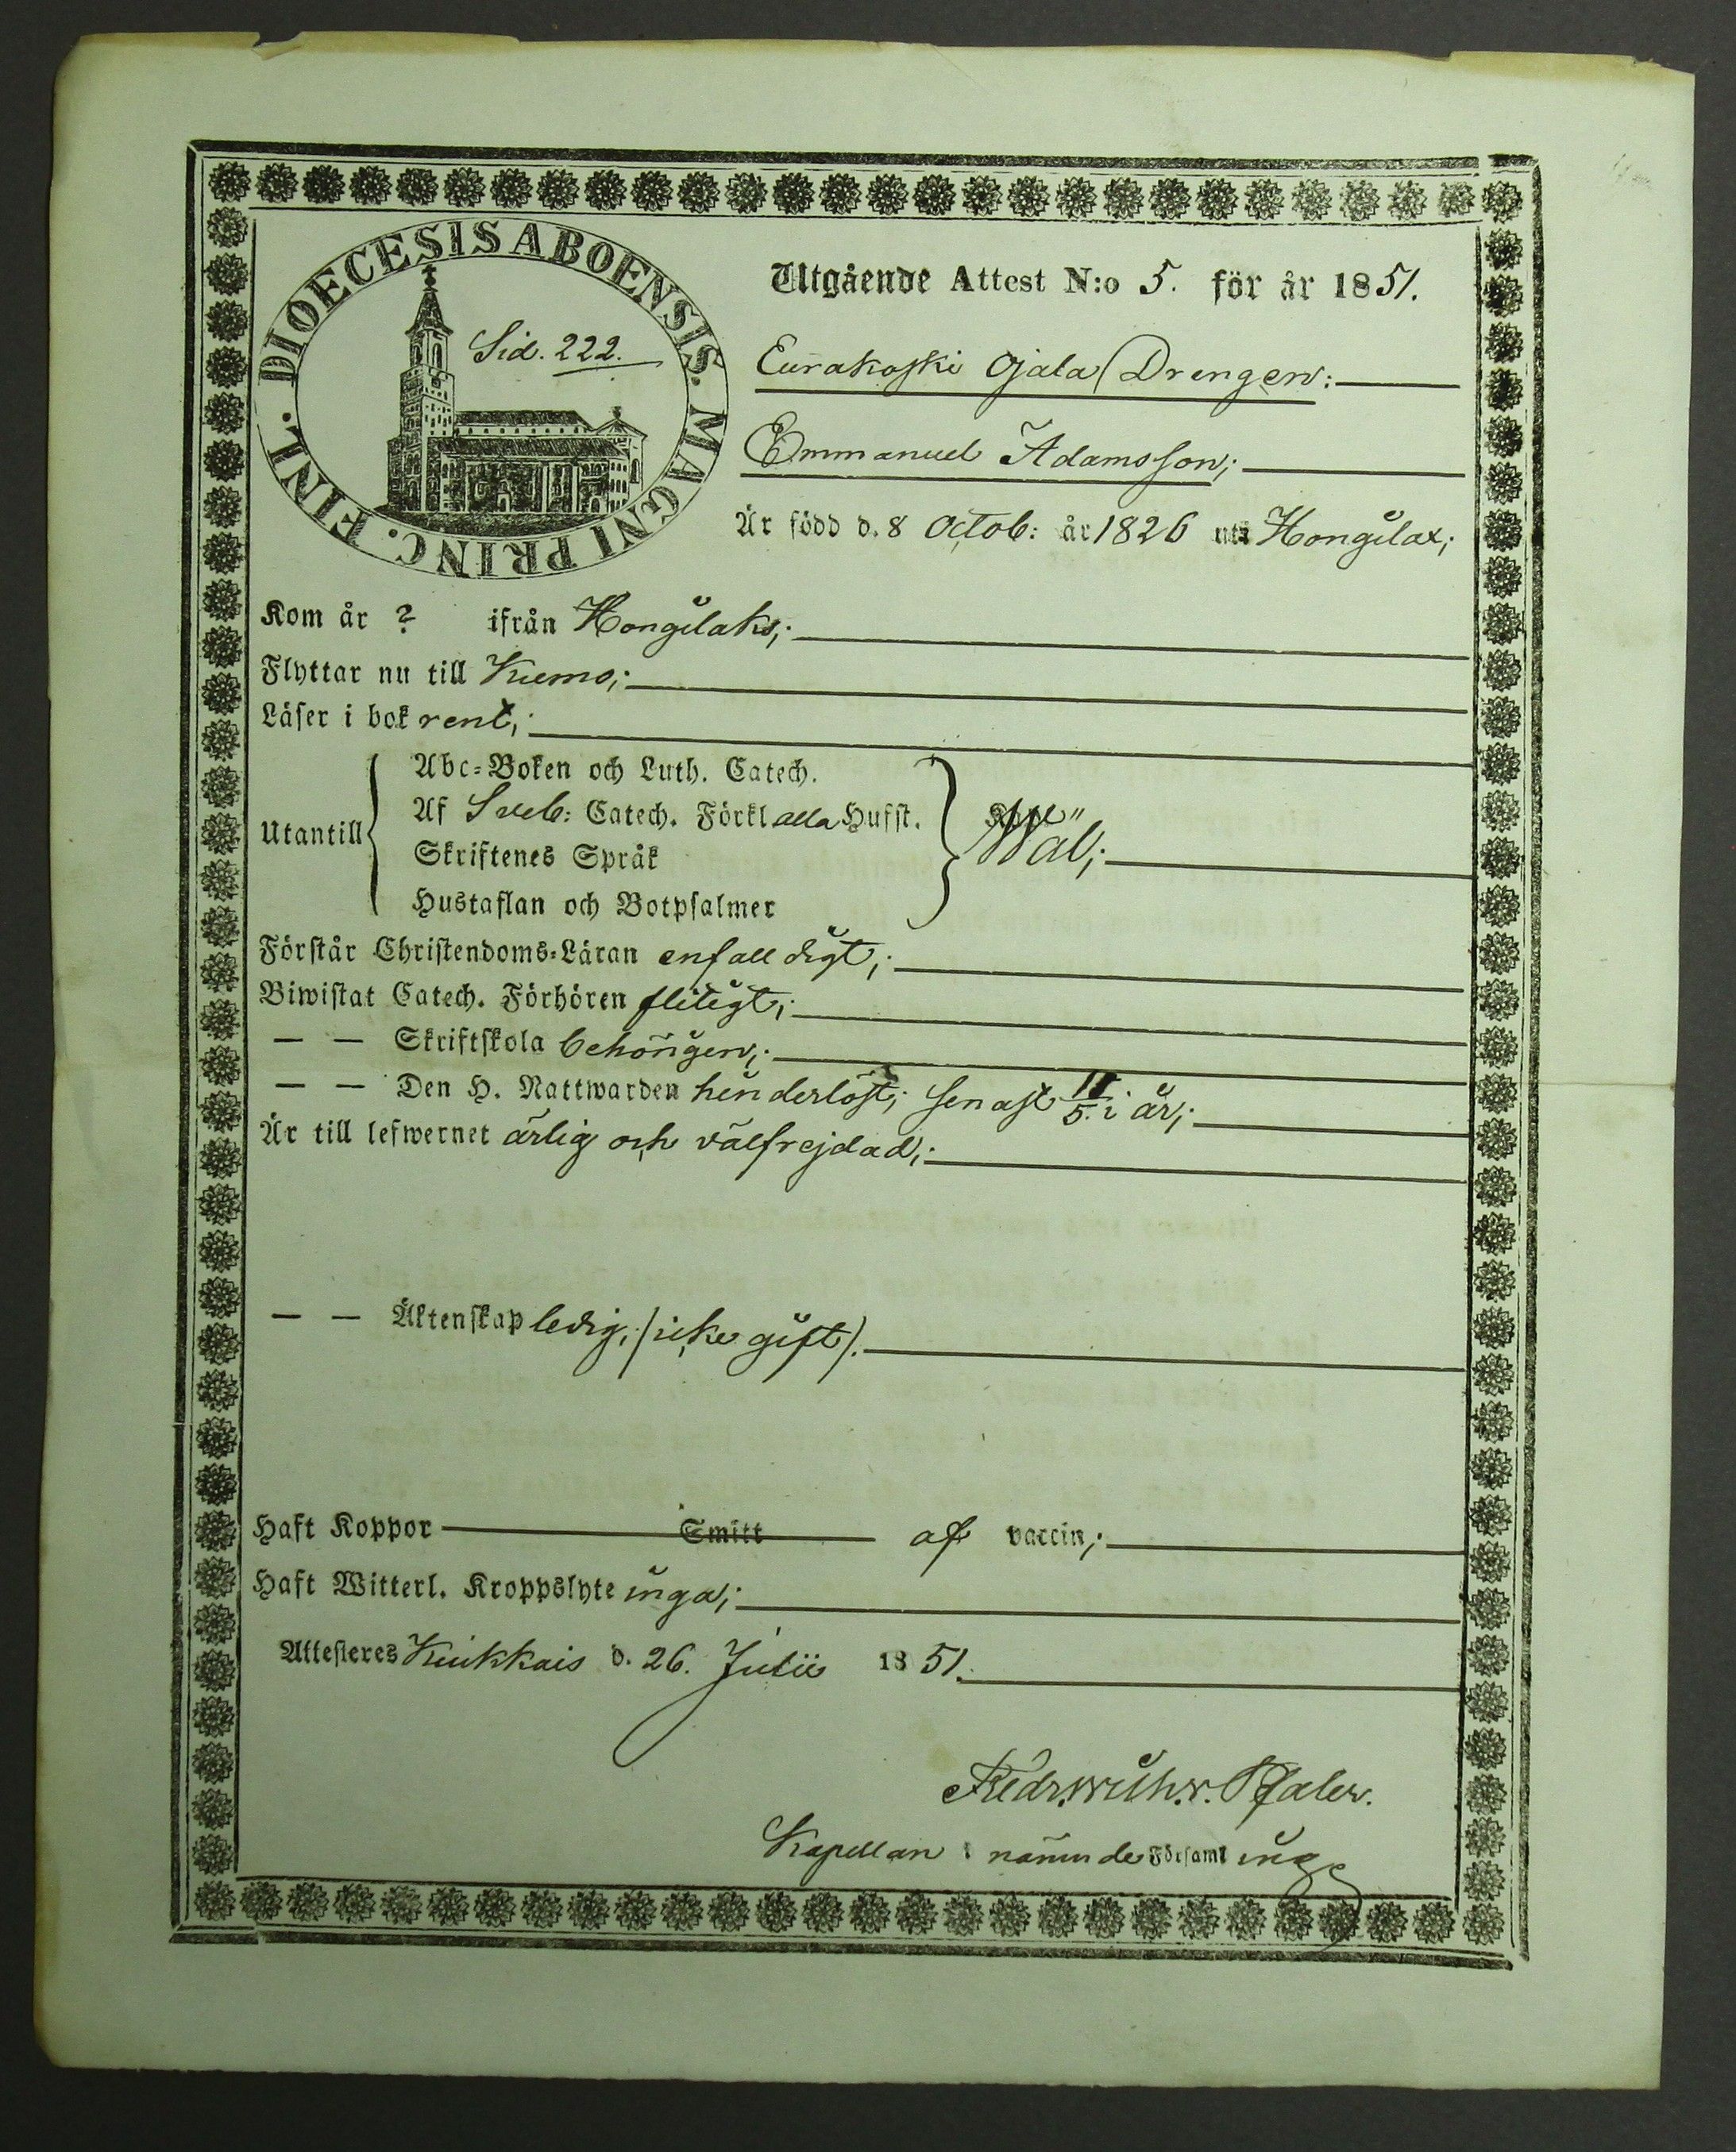 DIOECESIS ABOENSIS. MAGNI PRINC. FINL.
Sid. 222.
Utgående Attest N:o 5. för år 1851.
Eurakoski Ojala Drengen:
Emmanuel Adamsson;
Är född d. 8 Octob: år 1826 uti Hongilax;
Kom år ? ifrån Hongilaks;
Flyttar nu till Kumo;
Läser i bok rent;
Utantill
Abc-Boken och Luth. Catech.
Af Sveb: Catech. Förkl alla Hufst.
Skriftenes Språk
Hustaflan och Botpsalmer
Wäl;
Förstår Christendoms-Läran enfalldigt;
Biwistat Catech. Förhören flitigt;
— — Skriftskola behörigen;
— — Den H. Nattwarden hinderlöst; senast 11/5. i år;
Är till lefwernet ärlig och välfrejdad;
— — Äktenskap ledig, /icke gift/.
Haft Koppor Smitt af vaccin;
Haft Witterl. Kroppslyte inga;
Attesteres Kiukkais d. 26. Julii 1851.
Fredr. Wilh. v. Pfaler.
Kapellan i nämnde Församling